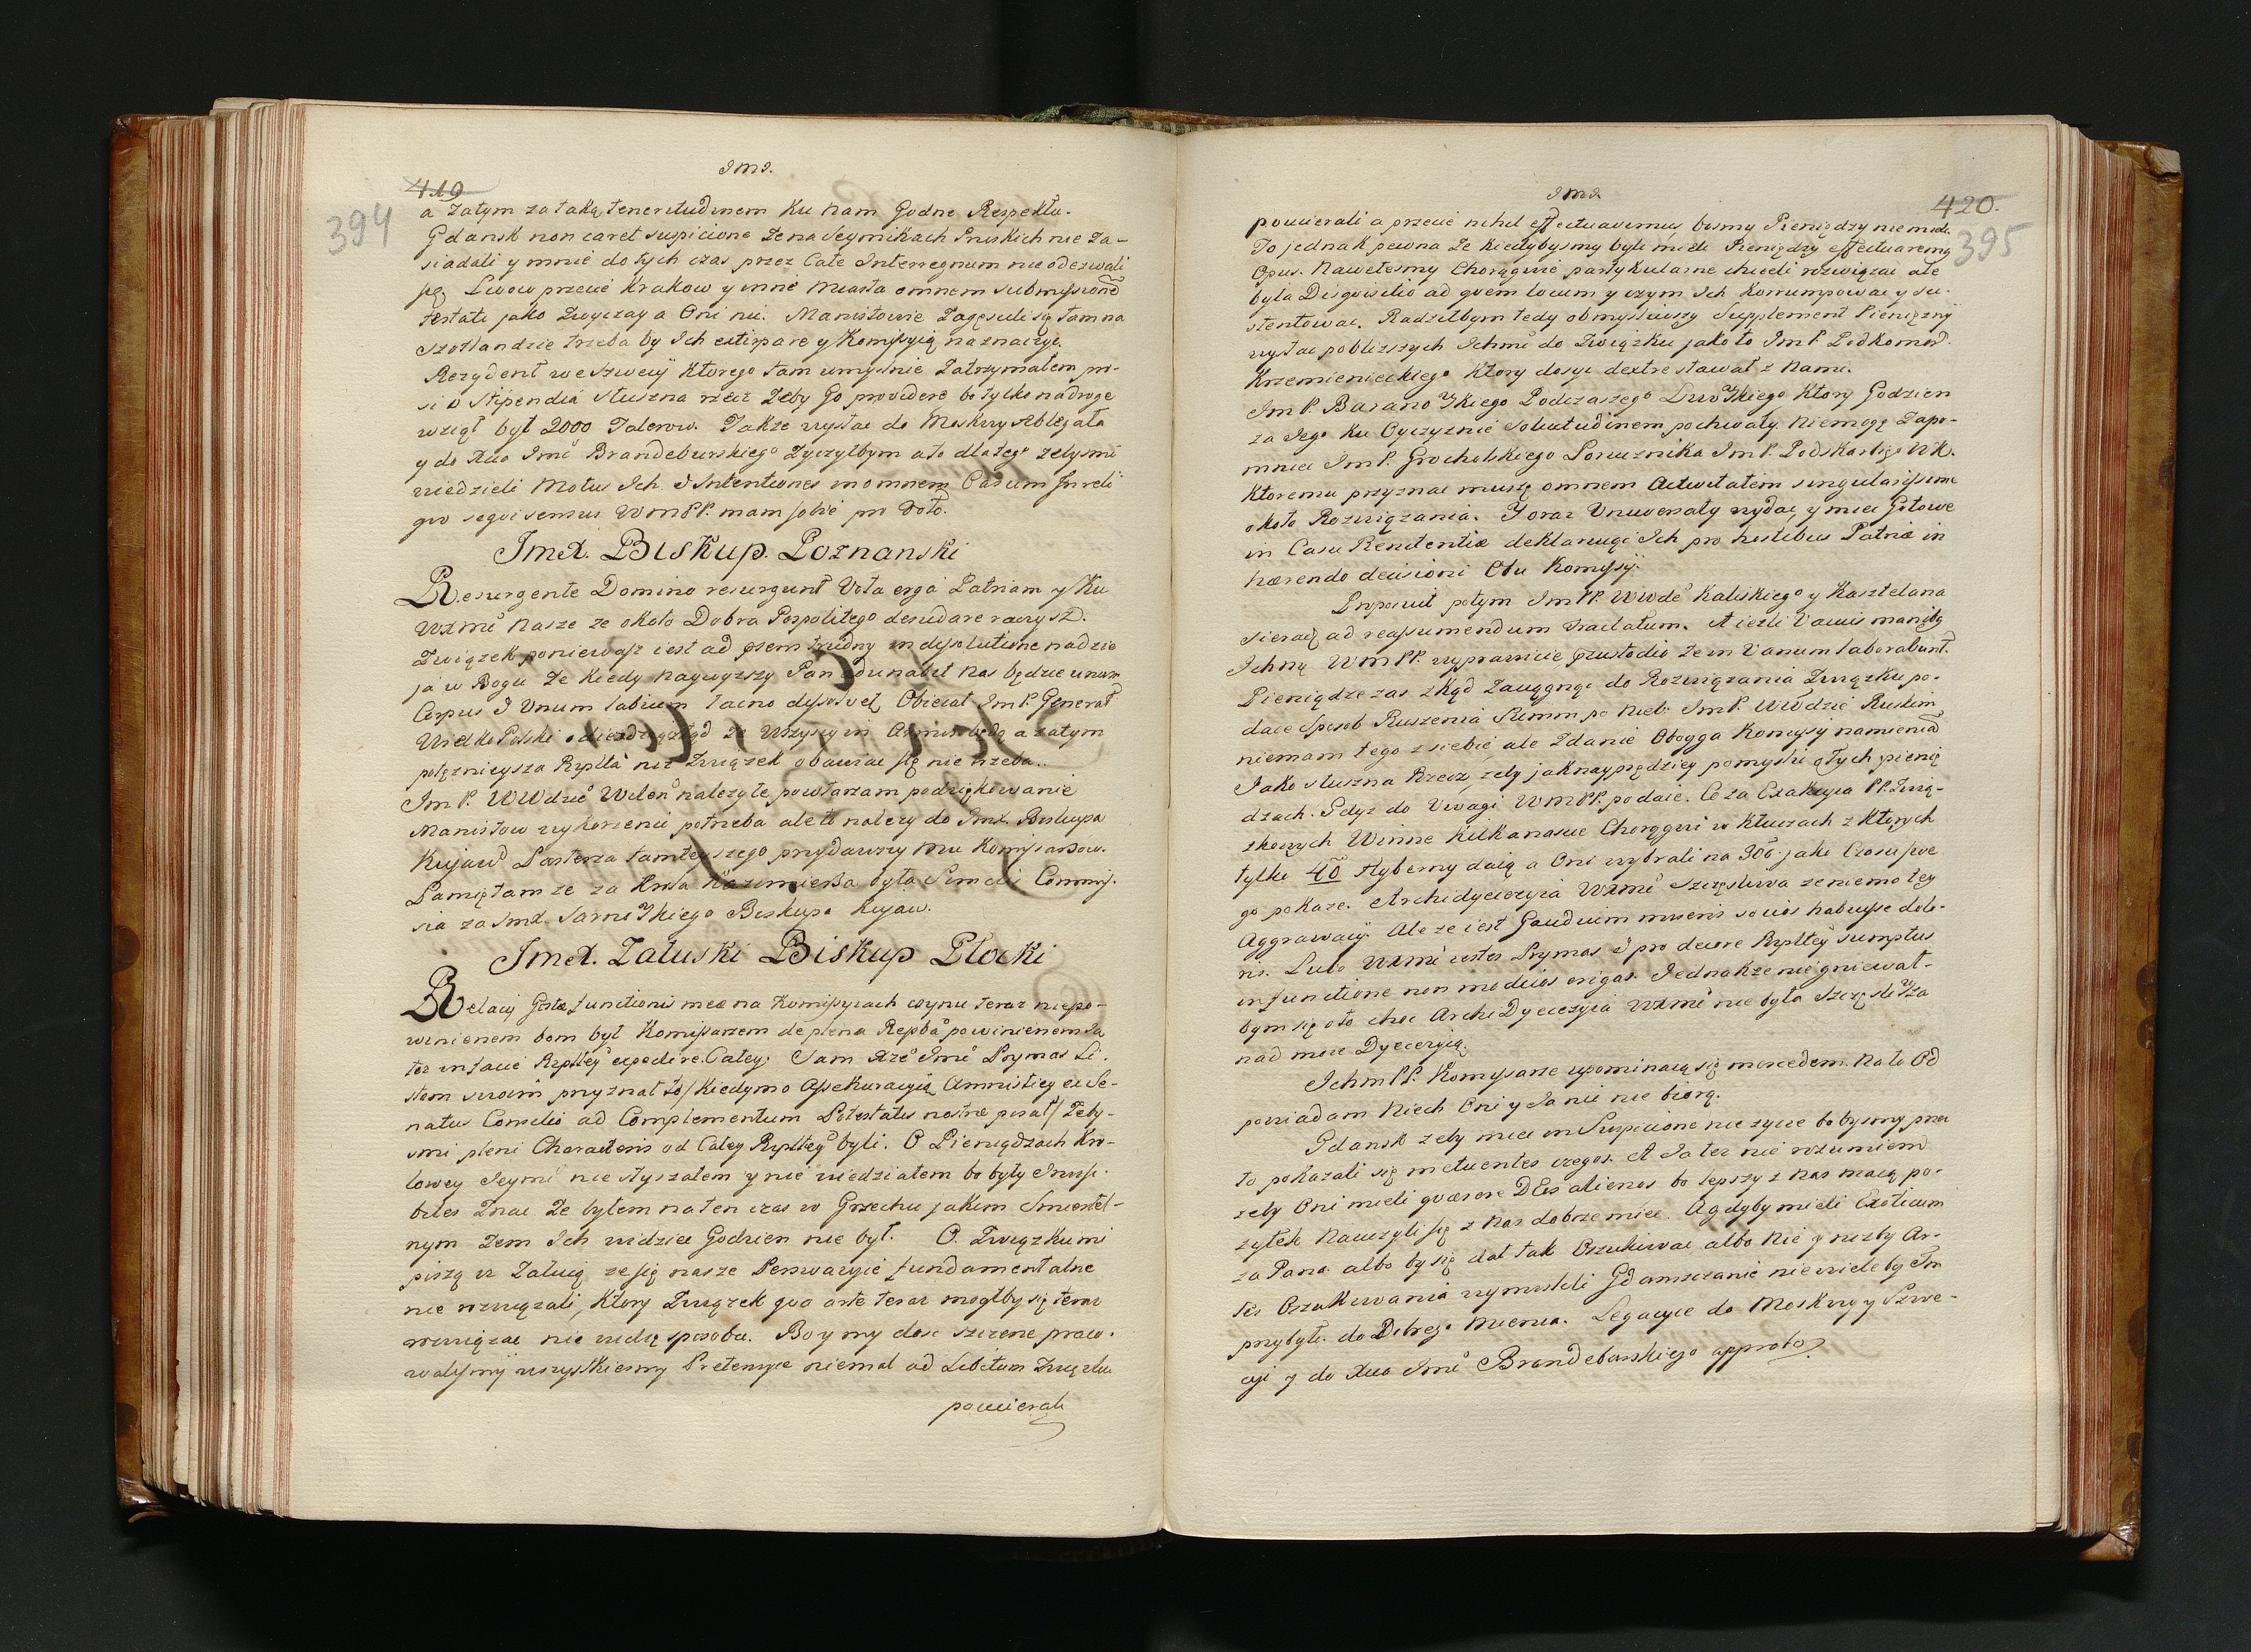 JMJ.
419
394
a Zatym za taką teneritudinem Ku nam Godne Respektu.
Gdansk non caret suspicione Ze na Seymikach Pruskich nie Za-
siadali y mnie do tych czas przez Cale Interregnum nie odezwali
się, Lwow przecie Krakow y inne Miasta omnem submissionē
testati jako Zwyczay a Oni nie. Manistowie Zagęscili się tam na
Szotlandzie trzeba by Ich extirpare y Komissyią naznaczyć.
Rezydent we Szwecÿ Ktorego tam umyslnie Zatrzymałem pro-
si o Stipendia Słuszna rzecz Zeby Go providere bo tylko na droge
wziął był 2000 Talerow. Takze wysłac do Moskwy Ablegata
y do Xcia Jmc Brandeburskiego Zyczyłbym a to dlatego zebysmi
wiedzieli Motus Ich & Intentiones in omnem Casum
quo sequi sensus WMPP. mam sobie pro Voto.
JmX. Biskup. Poznanski
Resurgente Domino resurgunt Vota erga Patriam y Ku
WXMci Nasze ze około Dobra Pospolitego desudare raczysz.
Związek poniewasz iest ad psem trudny in dissolutione nadzie
ja w Bogu Ze Kiedy naywyzszy Pan adunabit nas będzie unum
Corpus & Unum labium łacno dissolvet, Obiecał JmP. Generał
WielkoPolski odiezdzaiąc ztąd ze Wszyscy in Armis będą a zatym
potęznieysza Rzplta niz Związek obawiac się nie trzeba..
JmP. WWdzie Wilen należyte powtarzam podziękowanie
Manistow wykorzenic potrzeba ale to nalezy do JmX. Biskupa
Kujaw Pasterza tamteyszego przydawszy mu Komissarzow.
Pamiętam ze za Krola Kazimierza była Similis Commis-
sia za JmX. Sarnowskiego Biskupa Kujaw.
JmX. Załuski Biskup Płocki
Relacÿ Gestæ functionis meæ na Komissyiach czynic teraz niepo-
winienem bom był Komissarzem de plena Repba powinienem ia
tez in facie Rzpltey expedire. Całey. Sam Xze Jmc Prymas Li-
stem swoim przyznał to/ Kiedy mo Assekuracyią Amnistiey ex Se-
natus Consilio ad Complementum Potestatis nostræ pisał/ Zeby-
smi pleni Characteris od Całey Rzpltey byli. O Pieniądzach Kro-
lowey Jeymc nie słyszałem y nie wiedziałem bo były Invisi-
biles Znac Ze byłem na ten czas w Grzechu jakim Smiertel-
nym Zem Ich widziec Godzien nie był. O Związku mi
piszą iz Załuią ze się nasze Perswazyie fundamentalne
nie rozwiązali, Ktory Związek qua arte teraz mogłby się teraz
rozwiązac nie widzę sposobu. Bo y my dosc szczerze praco-
walismÿ wszystkiesmy Pretensye niemal ad Libitum Związku
powierali

JMJ.
420.
395
powierali a przecie nihil effectuavimus bosmy Pieniędzy nie mieli.
To jednak pewna Ze Kiedybysmy byli mieli Pieniędzy effectuaremus
Opus. Nawetesmy Chorągwie partykularne chcieli rozwiązac ale
była Disquisitio ad quem locum y czym Ich Korrumpowac y su-
stentowac. Radziłbym tedy obmysliwszy Supplement Pieniężny
wysłac pobliższych Ichmc do Związku jako to JmP. Podkomorz.
Krzemienieckiego Ktory dosyc dextre stawał z Nami.
JmP. Baranowskiego Podczaszego Lwowskiego Ktory Godzien
za Jego Ku Oyczyznie Solicitudinem pochwały. Niemogę Zapo-
mniec JmP. Grocholskiego Porucznika JmP. Podskarbiego WK.
Ktoremu przyznac muszę omnem Activitatem singularissime
około Rozwiązania. Y oraz Uniwersały wydac, y miec Gotowe
in Casu Renitentiæ deklaruiąc Ich pro hostibus Patriæ in
hærendo decisioni Obu Komissÿ.
Proposuit potym JmPP. WWdē Kaliskiego y Kasztelana
Sieradz ad reassumendum Tractatum. A iezli Vacuis manibus
Ichmę WMPP. wyprawicie Zem Vanum laborabunt.
Pieniądze zas zkąd Zaciągnąc do Rozwiązania Związku po-
daie Sposob Ruszenia Summ po Nieb: JmP. WWdzie Ruskim
niemam tego z siebie, ale Zdanie Oboyga Komissÿ namieniā
Jako słuszna Rzecz, zeby jak nayprędziey pomyslic o tych pienię
dzach. Gdyz do Uwagi WMPP. podaie. Co za Exakcyia PP. Zwią-
zkowych Winne Kilkanascie Chorągwi w Kluczach z Ktorych
tylko 40 Hyberny daią a Oni wybrali na 300. jako Czasu swe
go pokaze. Archidyecezyia WXMci szczęsliwa ze nie ma tey
Aggrawacÿ. Ale ze iest Gaudium miseris socios habuisse dolo-
ris. Lubo WXMci iestes Prymas & pro decore Rzpltey sumptus
in functione non modicos erigas. Jednakze nie gniewał-
bym się o to choc ArchiDyecezyia WXMci nie była Szczęsliwsza
nad moie Dyecezyią.
IchmPP. Komissarze upominaią się mercedem. Na to Od
powiadam Niech Oni y Ja nic nie biorą.
Gdansk zeby miec in Suspicione nie zycze bo bysmy przez
to pokazali się metuentes czegos. A Ja tez nie rozumiem
zeby Oni mieli quærere DEos alienos bo lepszy z Nas maią po-
zytek Nauczyli się z Nas dobrze miec. A gdyby mieli Exoticum
za Pana albo by się dał tak Oszukiwac albo Nie y nizby Ar-
tes Oszukiwania wymyslili Gdanszczanie niewiele by Im
przybyło do Dobrego Mienia. Legacyie do Moskwy y Szwe-
cyi y do Xcia Jmc Brandeburskiego approbo.